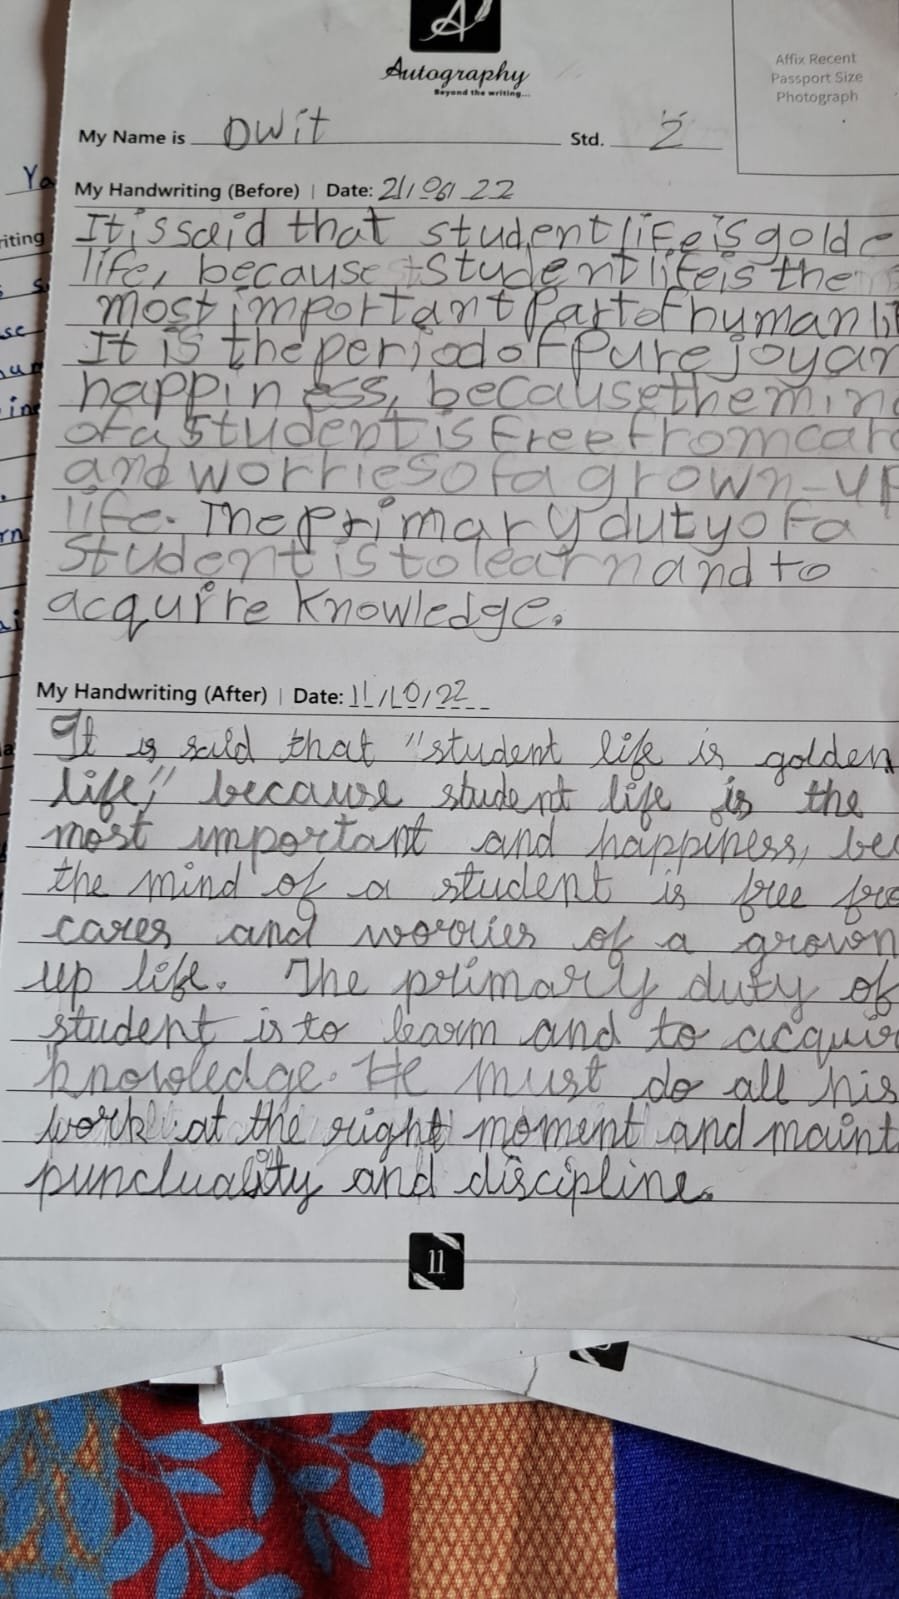 Autography
Beyond the writing...
Affix Recent
Passport Size
Photograph
My Name is DWit Std. 2
My Handwriting (Before) | Date: 21/06/22
It is said that student life is golde
life, because student life is the
most important Part of human li
It is the period of Pure joy an
happiness, because the min
of a student is free from car
and worries of a grown-up
life. The primary duty of a
student is to learn and to
acquire knowledge.
My Handwriting (After) | Date: 11/10/22
It is said that "student life is golden
life," because student life is the
most important and happiness, bec
the mind of a student is free fro
cares and worries of a grown
up life. The primary duty of
student is to learn and to acquir
knowledge. He must do all his
work at the right moment and maint
punctuality and discipline.
11